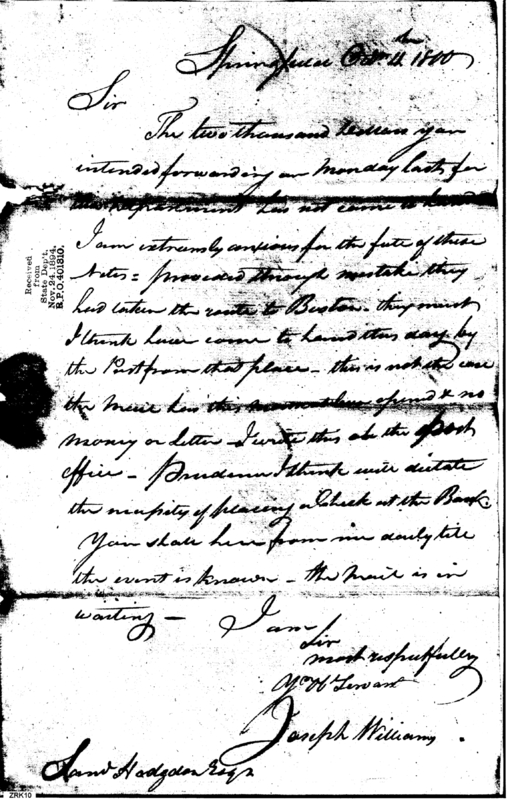 Springfield Octr. 11th 1800
Sir
The two thousand dollars you
intended forwarding on Monday last, for
this department has not come to hand
I am extremely anxious for the fate of these
Notes = provided through mistake they
had taken the route to Boston - they must
I think have come to hand this day by
the Post from that place - this is not the case
the Mail has this moment been opened & no
money or letter - I write this at the post
office - Prudence I think will dictate
the necessity of placing a Check at the Bank.
You shall hear from me daily till
the event is known - the Mail is in
waiting -
I am
Sir
most respectfully
Yr. H Servant
Joseph Williams.
Saml Hodgdon Esqr
Received
from
State Dep't.
Nov. 24, 1894,
R.P.O. 401810.
ZRK10